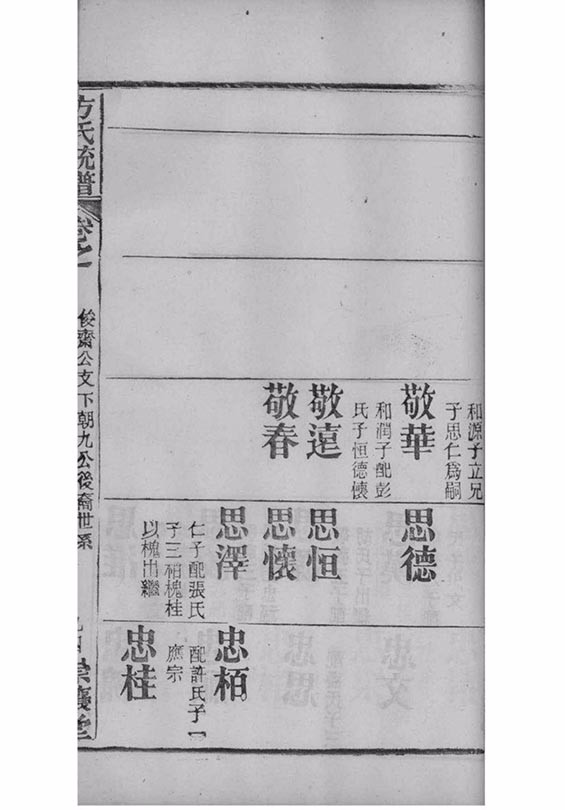 和源子立兄
子思仁爲嗣
敬華
和潤子配彭
氏子恒德懷
敬遠
敬春
思德
思恒
思懷
思澤
仁子配張氏
子三栢槐桂
以槐出繼
忠栢
配許氏子一
應宗
忠桂
方氏統譜
卷之
俊齋公支下朝九公後裔世系